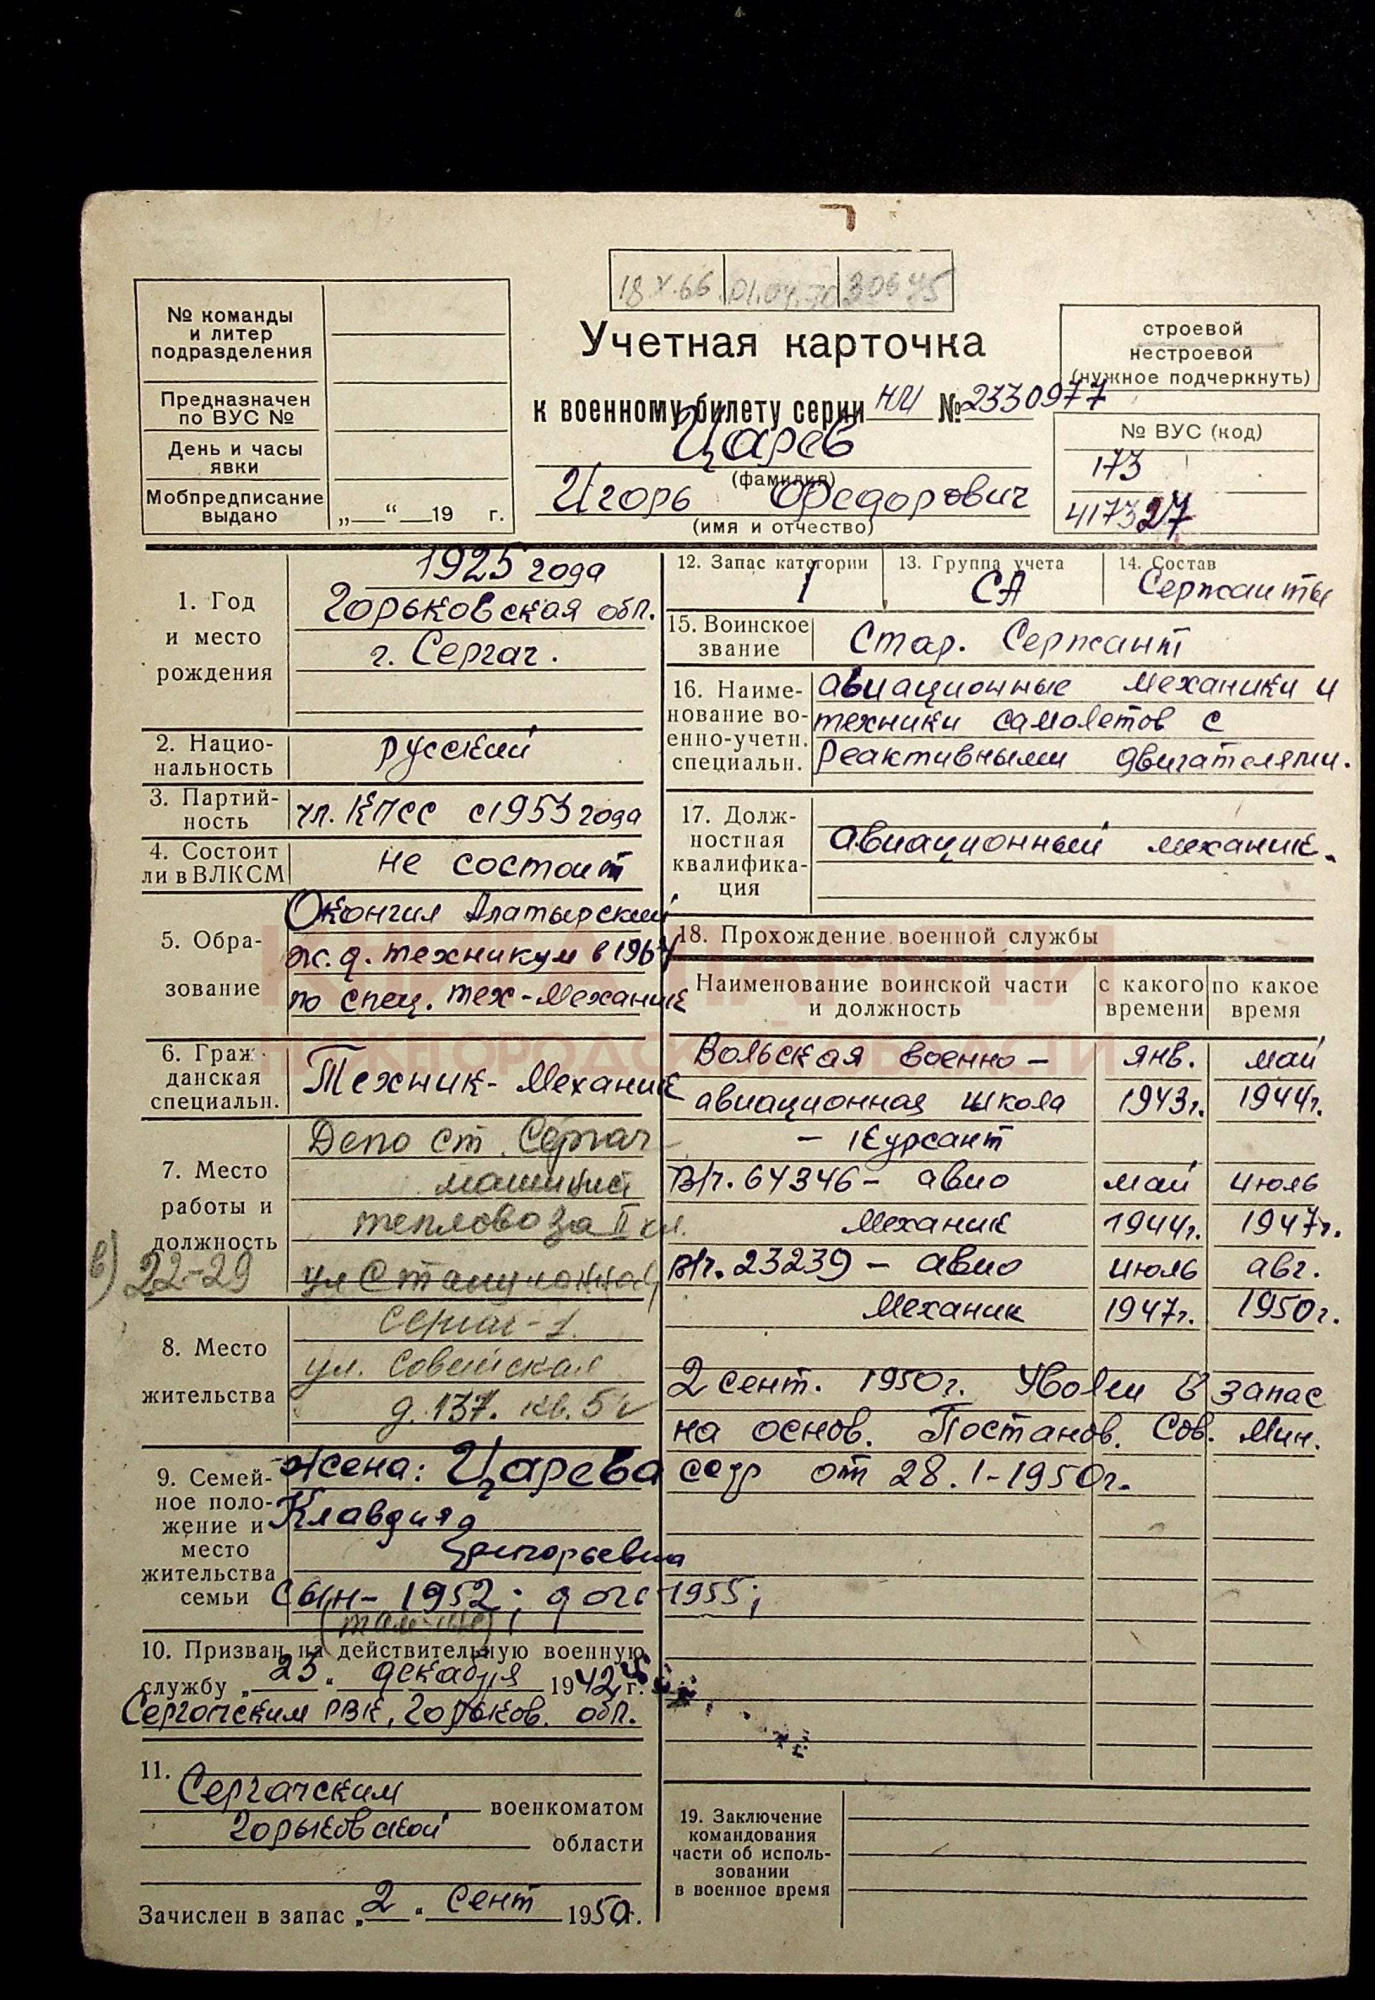 18 X.66 01.04.70 30675
№ команды
и литер
подразделения
Предназначен
по ВУС №
День и часы
явки
Мобпредписание
выдано „—“—19 г.
Учетная карточка
к военному билету серии НИ № 2330977
Царев
(фамилия)
Игорь Федорович
(имя и отчество)
строевой
нестроевой
(нужное подчеркнуть)
№ ВУС (код)
173
417327
1. Год
и место
рождения
1925 года
Горьковская обл.
г. Сергач.
2. Нацио-
нальность
русский
3. Партий-
ность
чл. КПСС с 1953 года
4. Состоит
ли в ВЛКСМ
не состоит
5. Обра-
зование
Окончил Алатырский
ж.д. техникум в 1964
по спец. тех-механик
6. Граж-
данская
специальн.
Техник-механик
7. Место
работы и
должность
Депо ст. Сергач
машинист
тепловоза II кл.
в) 22-29
8. Место
жительства
Сергач-1
ул. Советская
д. 137. кв. 5
9. Семей-
ное поло-
жение и
место
жительства
семьи
Жена: Царева
Клавдия
Григорьевна
Сын- 1952; дочь-1955;
(там-же)
10. Призван на действительную военную
службу „23“ декабря 1942 г.
Сергачским РВК, Горьков. обл.
11.
Сергачским военкоматом
Горьковской области
Зачислен в запас „2“ сент 1950г.
12. Запас категории
1
13. Группа учета
СА
14. Состав
Сержанты
15. Воинское
звание
Стар. Сержант
16. Наиме-
нование во-
енно-учетн.
специальн.
авиационные механики и
техники самолетов с
реактивными двигателями.
17. Долж-
ностная
квалифика-
ция
авиационный механик.
18. Прохождение военной службы
Наименование воинской части
и должность
с какого
времени
по какое
время
Вольская военно- янв. май
авиационная школа 1943г. 1944г.
- курсант
в/ч. 64346- авио май июль
механик 1944г. 1947г.
в/ч. 23239- авио июль авг.
механик 1947г. 1950г.
2 сент. 1950г. Уволен в запас
на основ. Постанов. Сов. Мин.
ссср от 28.1-1950г.
19. Заключение
командования
части об исполь-
зовании
в военное время
КНИГА ПАМЯТИ
НИЖЕГОРОДСКОЙ ОБЛАСТИ